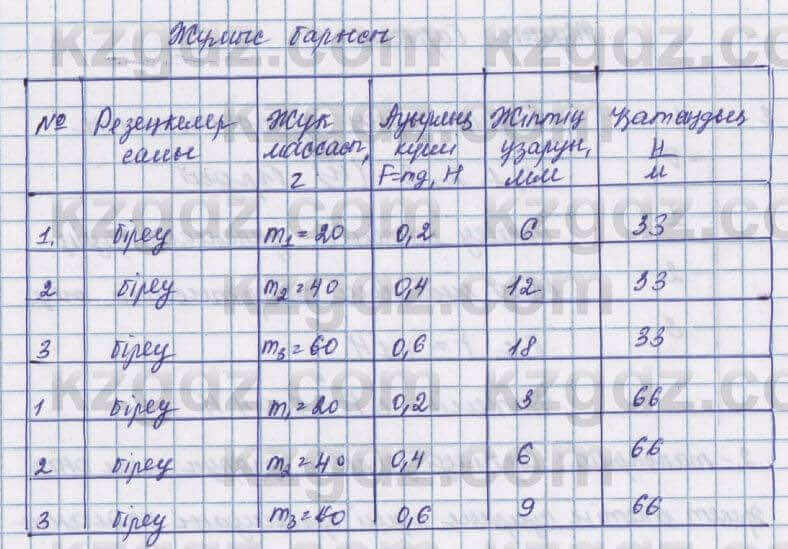 Жұмыс барысы
№ Резеңкелер саны Жүк массасы, г Ауырлық күші F=mg, Н Жіптің ұзаруы, мм Қатаңдық Н/м
1. біреу m₁=20 0,2 6 33
2 біреу m₂=40 0,4 12 33
3 біреу m₃=60 0,6 18 33
1 біреу m₁=20 0,2 3 66
2 біреу m₂=40 0,4 6 66
3 біреу m₃=60 0,6 9 66
kzgdz.com